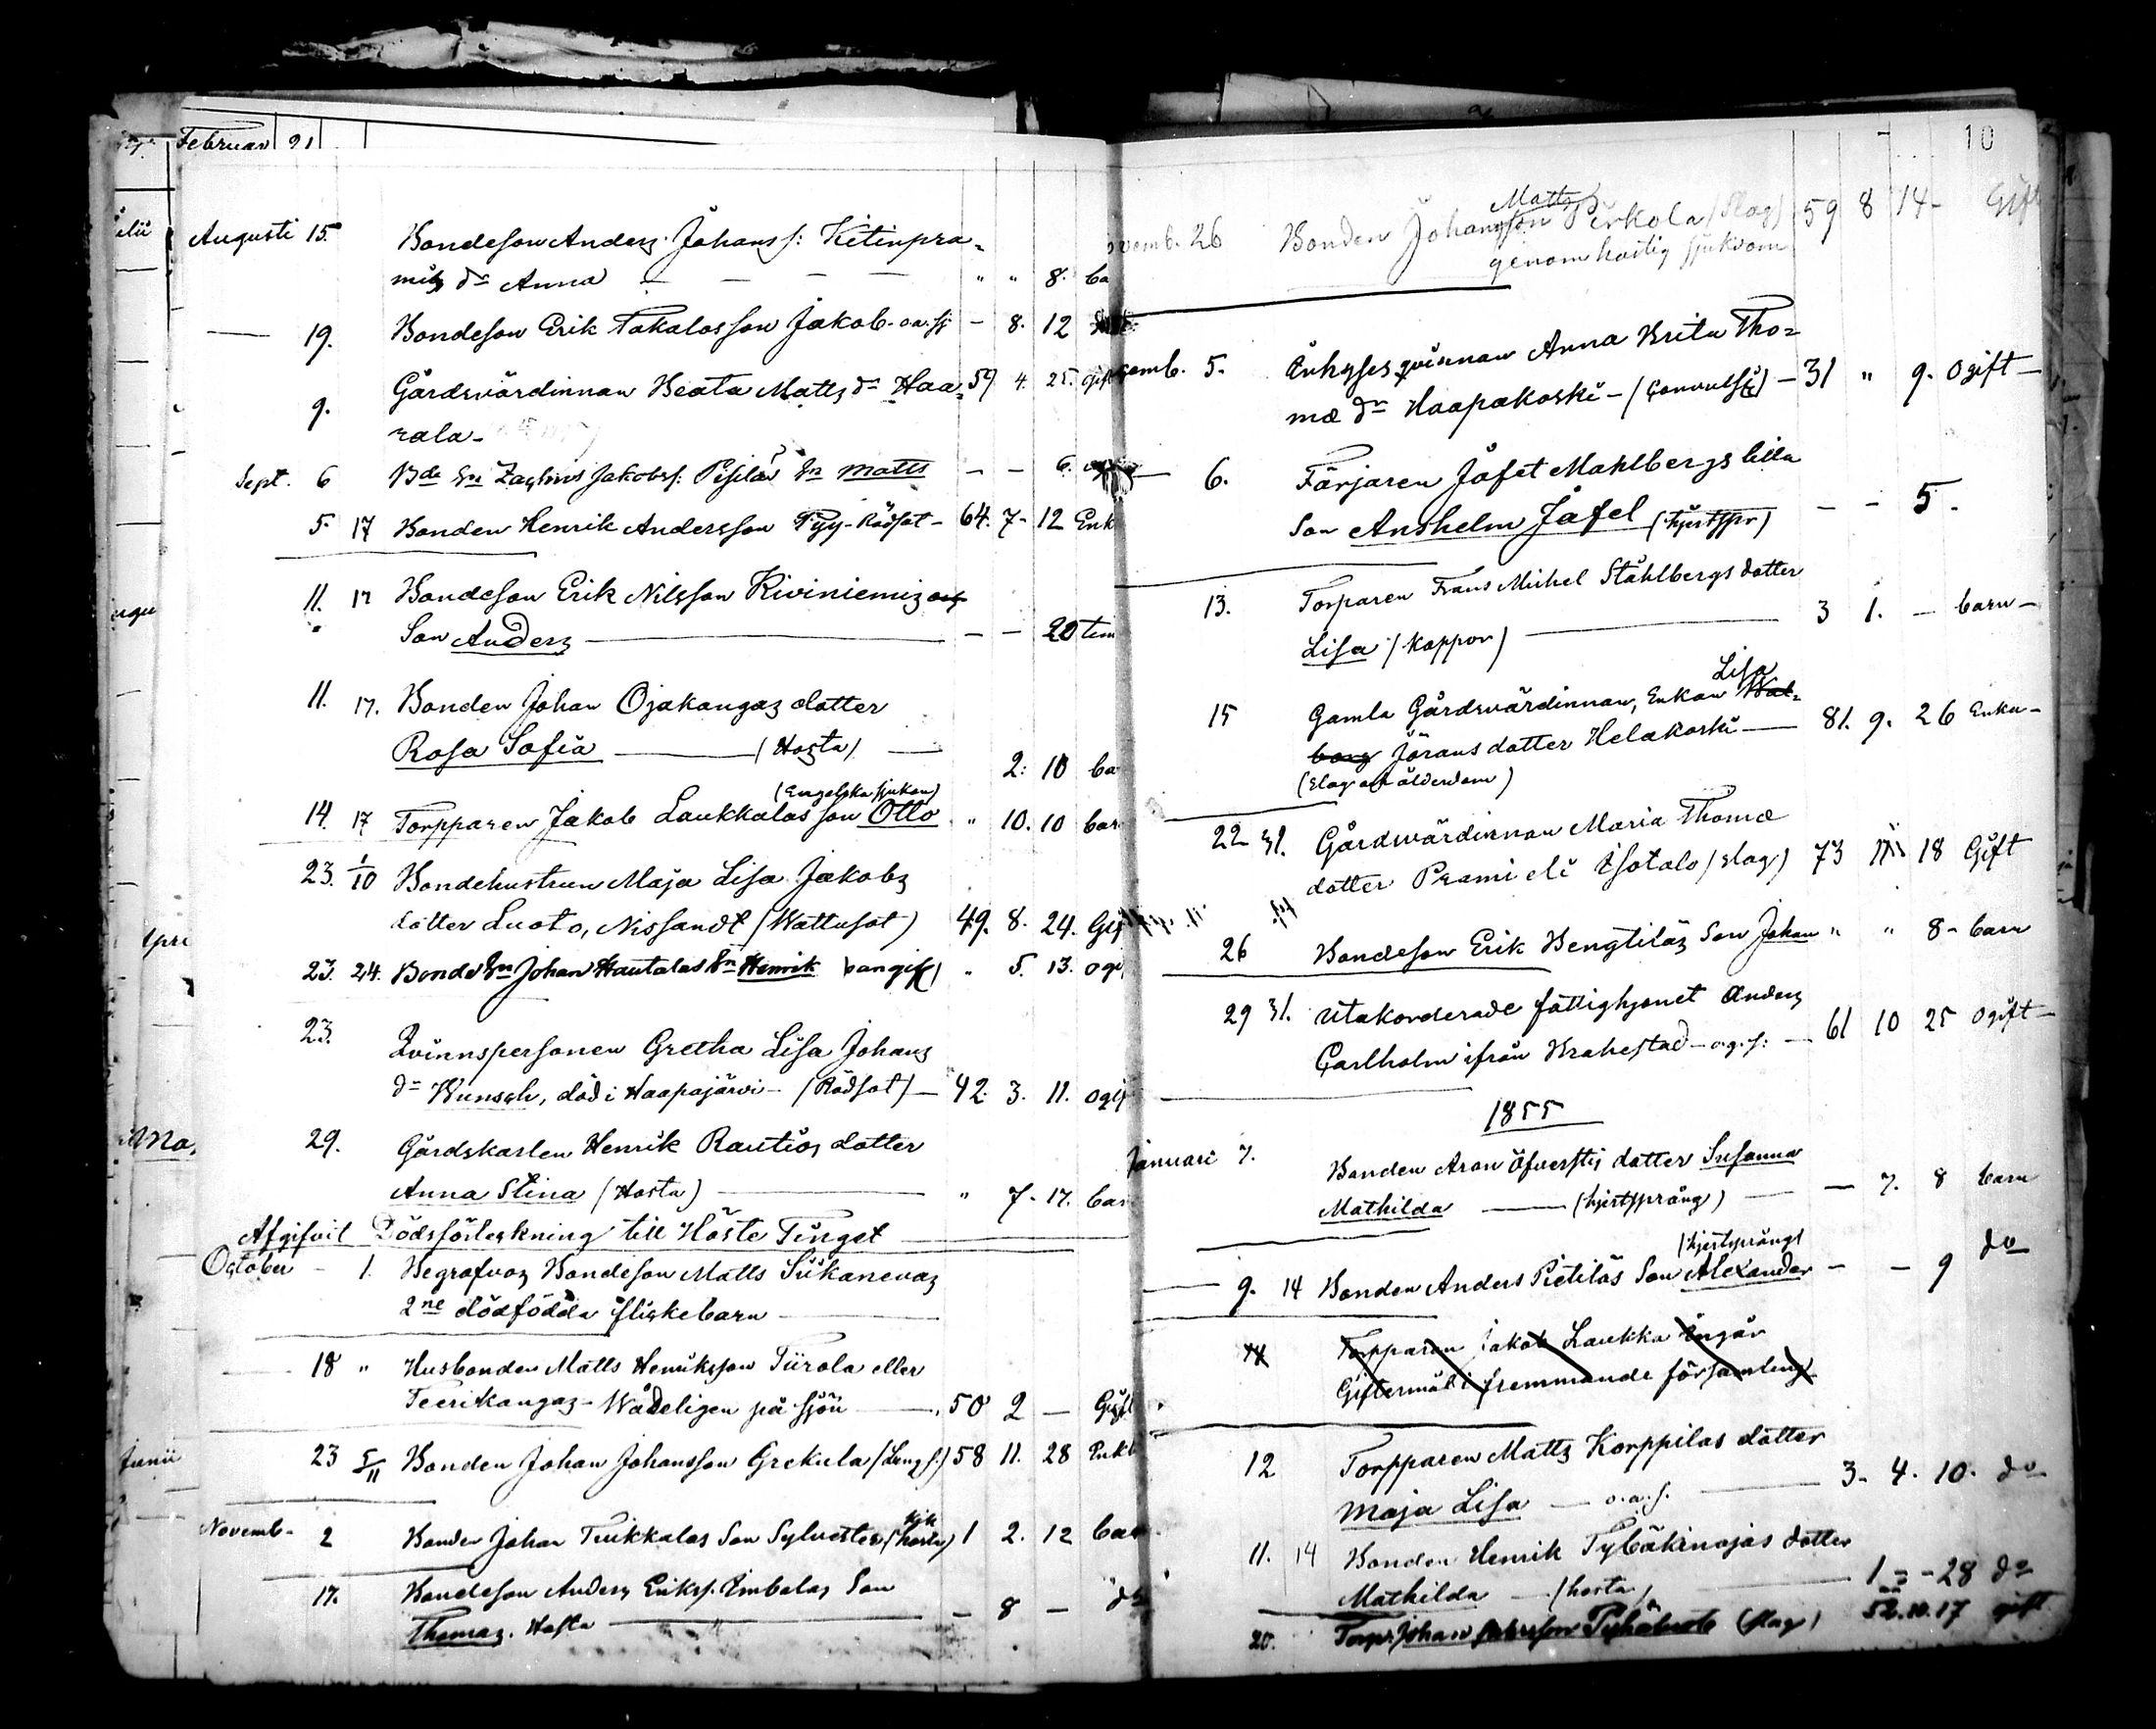 Februar 21
Augusti 15. Bondeson Anders Johans s: Kitinpra-
mis dr Anna — — — " " 8. ba
— 19. Bondeson Erik Takalos son Jakob o.a.sj. - 8. 12
9. Gårdsvärdinnan Beata Matts dr Haa- 59 4. 25. gift
rala-
Sept. 6 Bde Sn Zachris Jakobs s: Pisilä Sn Matts - - 6.
5. 17 Bonden Henrik Andersson Pyy - Rödsot - 64. 7- 12 Enk
11. 17 Bondeson Erik Nilsson Kiviniemis
Son Anders — - - 20 tim
11. 17. Bonden Johan Ojakangas dotter
Rosa Sofia — (Hosta) — 2: 10 ba
(Engelska sjukan)
14. 17 Torpparen Jakob Laukkalas son Otto " 10. 10 bar
23. 1/10 Bondehustrun Maja Lisa Jakobs
dotter Luoto, Nissandt (Wattusot) 49. 8. 24. Gif
23. 24. Bonde Sn Johan Hautalas Sn Henrik (oangif) " 5. 13. ogi
23. Qvinnspersonen Gretha Lisa Johans
dr Bunsch, död i Haapajärvi - (Rödsot) - 42. 3. 11. ogif
29. Gårdskarlen Henrik Rautios dotter
Anna Stina (Hosta) — " 7- 17. bar
Afgifvit Dödsförteckning till Höste Tinget
October - 1. Begrofvos Bondeson Matts Siikanevas
2ne dödfödda flickebarn
— 18 " Husbonden Matts Henriksson Tiirola eller
Teerikangas - Wådeligen på sjön — 50 2 — Gift
23 5/11 Bonden Johan Johansson Grekula (Lung s:) 58 11. 28 Enkl
Novemb- 2 Bonden Johan Tuikkalas Son Sylvester (kik hosta) 1 2. 12 bar
17. Bondeson Anders Eriks s: Embalas Son
Thomas. Hosta — - 8 — do
10
Matts
ovemb. 26 Bonden Johansson Perkola (Slag) 59 8 14- Gift
genom hastig sjukdom
cemb. 5. Enhyses qvinnan Anna Brita Tho-
mæ dr Haapakoski - (Convulsj) - 31 " 9. Ogift -
— 6. Färjaren Jafet Mahlbergs lilla
Son Anshelm Jafet (hjertspr) - - 5.
13. Torparen Frans Michel Ståhlbergs dotter
Lisa (Koppor) — 3 1. - barn -
Lisa
15 Gamla Gårdsvärdinnan, Enkan Wal-
borg Jörans dotter Helakoski — 81. 9. 26 Enka -
(Slag af ålderdom)
22 31. Gårdsvärdinnan Maria Thomæ
dotter Prami eli Isotalo (slag) 73 11 18 Gift
26 Bondeson Erik Bengtiläs Son Johan " " 8 - barn
29 31. Utakorderade fattighjonet Anders
Carlholm ifrån Brahestad - o.g.s: - 61 10 25 ogift -
1855
Januari 7. Bonden Aron Öfverstis dotter Susanna
Mathilda — (hjertsprång) — - 7. 8 barn
(hjertsprång)
— 9. 14 Bonden Anders Pietiläs Son Alexander - - 9 do
14 Torpparen Jakob Laukka Ingår
Giftermål i fremmande församling
12 Torpparen Matts Korppilas dotter
Maja Lisa — o.a.s. — 3- 4. 10- do
11. 14 Bonden Henrik Tybäkinojas dotter
Mathilda — (hosta) — 1 = - 28 do
20. Torp. Johan (Slag) 52. 10. 17 gift